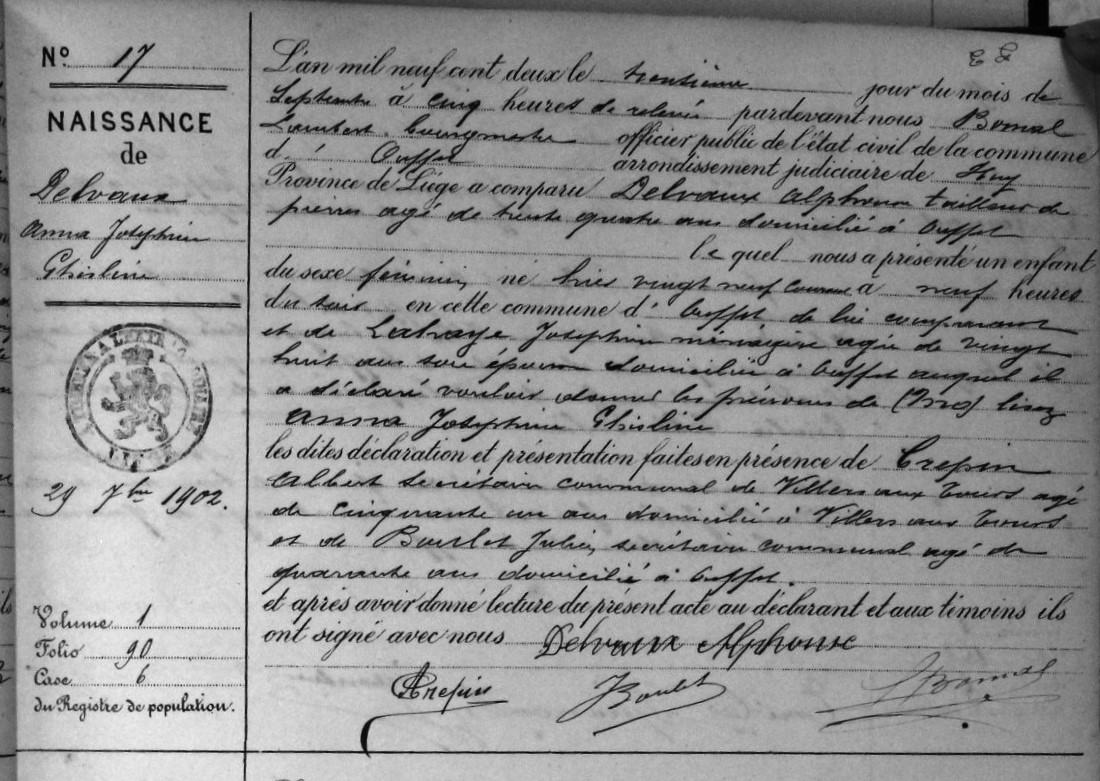 N° 17
NAISSANCE
de
Delvaux
Anna Josephine
Ghisline
29 7bre 1902.
Volume 1
Folio 90
Case 6
du Registre de population.
L'an mil neuf cent deux le trentième jour du mois de
Septembre à cinq heures de relevée pardevant nous Bomal
Lambert, bourgmestre officier public de l'état civil de la commune
d' Ouffet arrondissement judiciaire de Huy
Province de Liége a comparu Delvaux Alphonse tailleur de
pierres agé de trente quatre ans domicilié à Ouffet
le quel nous a présenté un enfant
du sexe féminin, né hier vingt neuf courant à neuf heures
du soir en cette commune d' Ouffet de lui comparant
et de Lahaye Josephine ménagère agée de vingt
huit ans son épouse domiciliée à Ouffet auquel il
a déclaré vouloir donner les prénoms de lisez
Anna Josephine Ghisline
les dites déclaration et présentation faites en présence de Crepin
Albert secrétaire communal de Villers aux Tours agé
de cinquante un ans domicilié à Villers aux Tours
et de Boulet Julien, secrétaire communal agé de
quarante ans domicilié à Ouffet.
et après avoir donné lecture du présent acte au déclarant et aux témoins ils
ont signé avec nous Delvaux Alphonse
ACrepin JBoulet LBomal